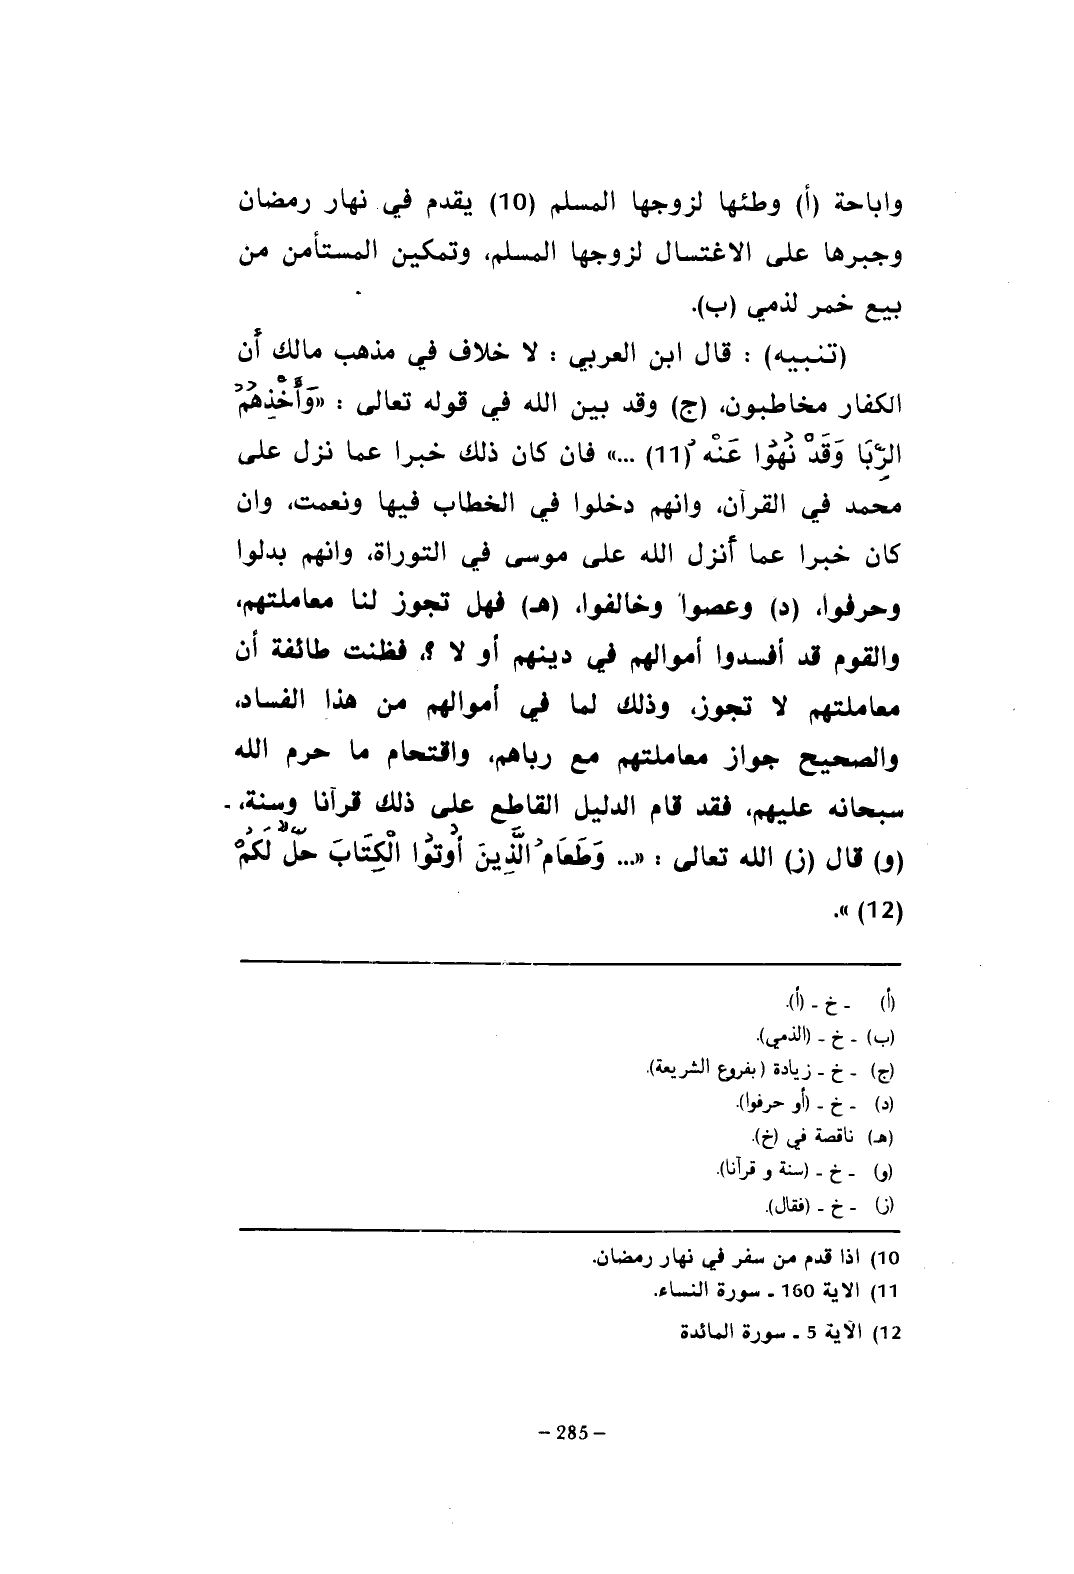 واباحة (أ) وطئها لزوجها المسلم (10) يقدم في نهار رمضان
وجبرها على الاغتسال لزوجها المسلم، وتمكين المستأمن من
بيع خمر لذمي (ب).
(تنبيه) : قال ابن العربي : لا خلاف في مذهب مالك أن
الكفار مخاطبون، (ج) وقد بين الله في قوله تعالى : «وَأَخْذِهِمُ
الرِّبَا وَقَدْ نُهُوا عَنْهُ (11) ...» فان كان ذلك خبرا عما نزل على
محمد في القرآن، وانهم دخلوا في الخطاب فيها ونعمت، وان
كان خبرا عما أنزل الله على موسى في التوراة، وانهم بدلوا
وحرفوا، (د) وعصوا وخالفوا، (هـ) فهل تجوز لنا معاملتهم،
والقوم قد أفسدوا أموالهم في دينهم أو لا ؟، فظنت طائفة أن
معاملتهم لا تجوز، وذلك لما في أموالهم من هذا الفساد،
والصحيح جواز معاملتهم مع رباهم، واقتحام ما حرم الله
سبحانه عليهم، فقد قام الدليل القاطع على ذلك قرآنا وسنة، -
(و) قال (ز) الله تعالى : «... وَطَعَامُ الَّذِينَ أُوتُوا الْكِتَابَ حِلٌّ لَكُمْ
(12) ».
(أ) - خ - (أ).
(ب) - خ - (الذمي).
(ج) - خ - زيادة (بفروع الشريعة).
(د) - خ - (أو حرفوا).
(هـ) ناقصة في (خ).
(و) - خ - (سنة و قرآنا).
(ز) - خ - (فقال).
10) اذا قدم من سفر في نهار رمضان.
11) الاية 160 - سورة النساء.
12) الآية 5 - سورة المائدة
– 285 –